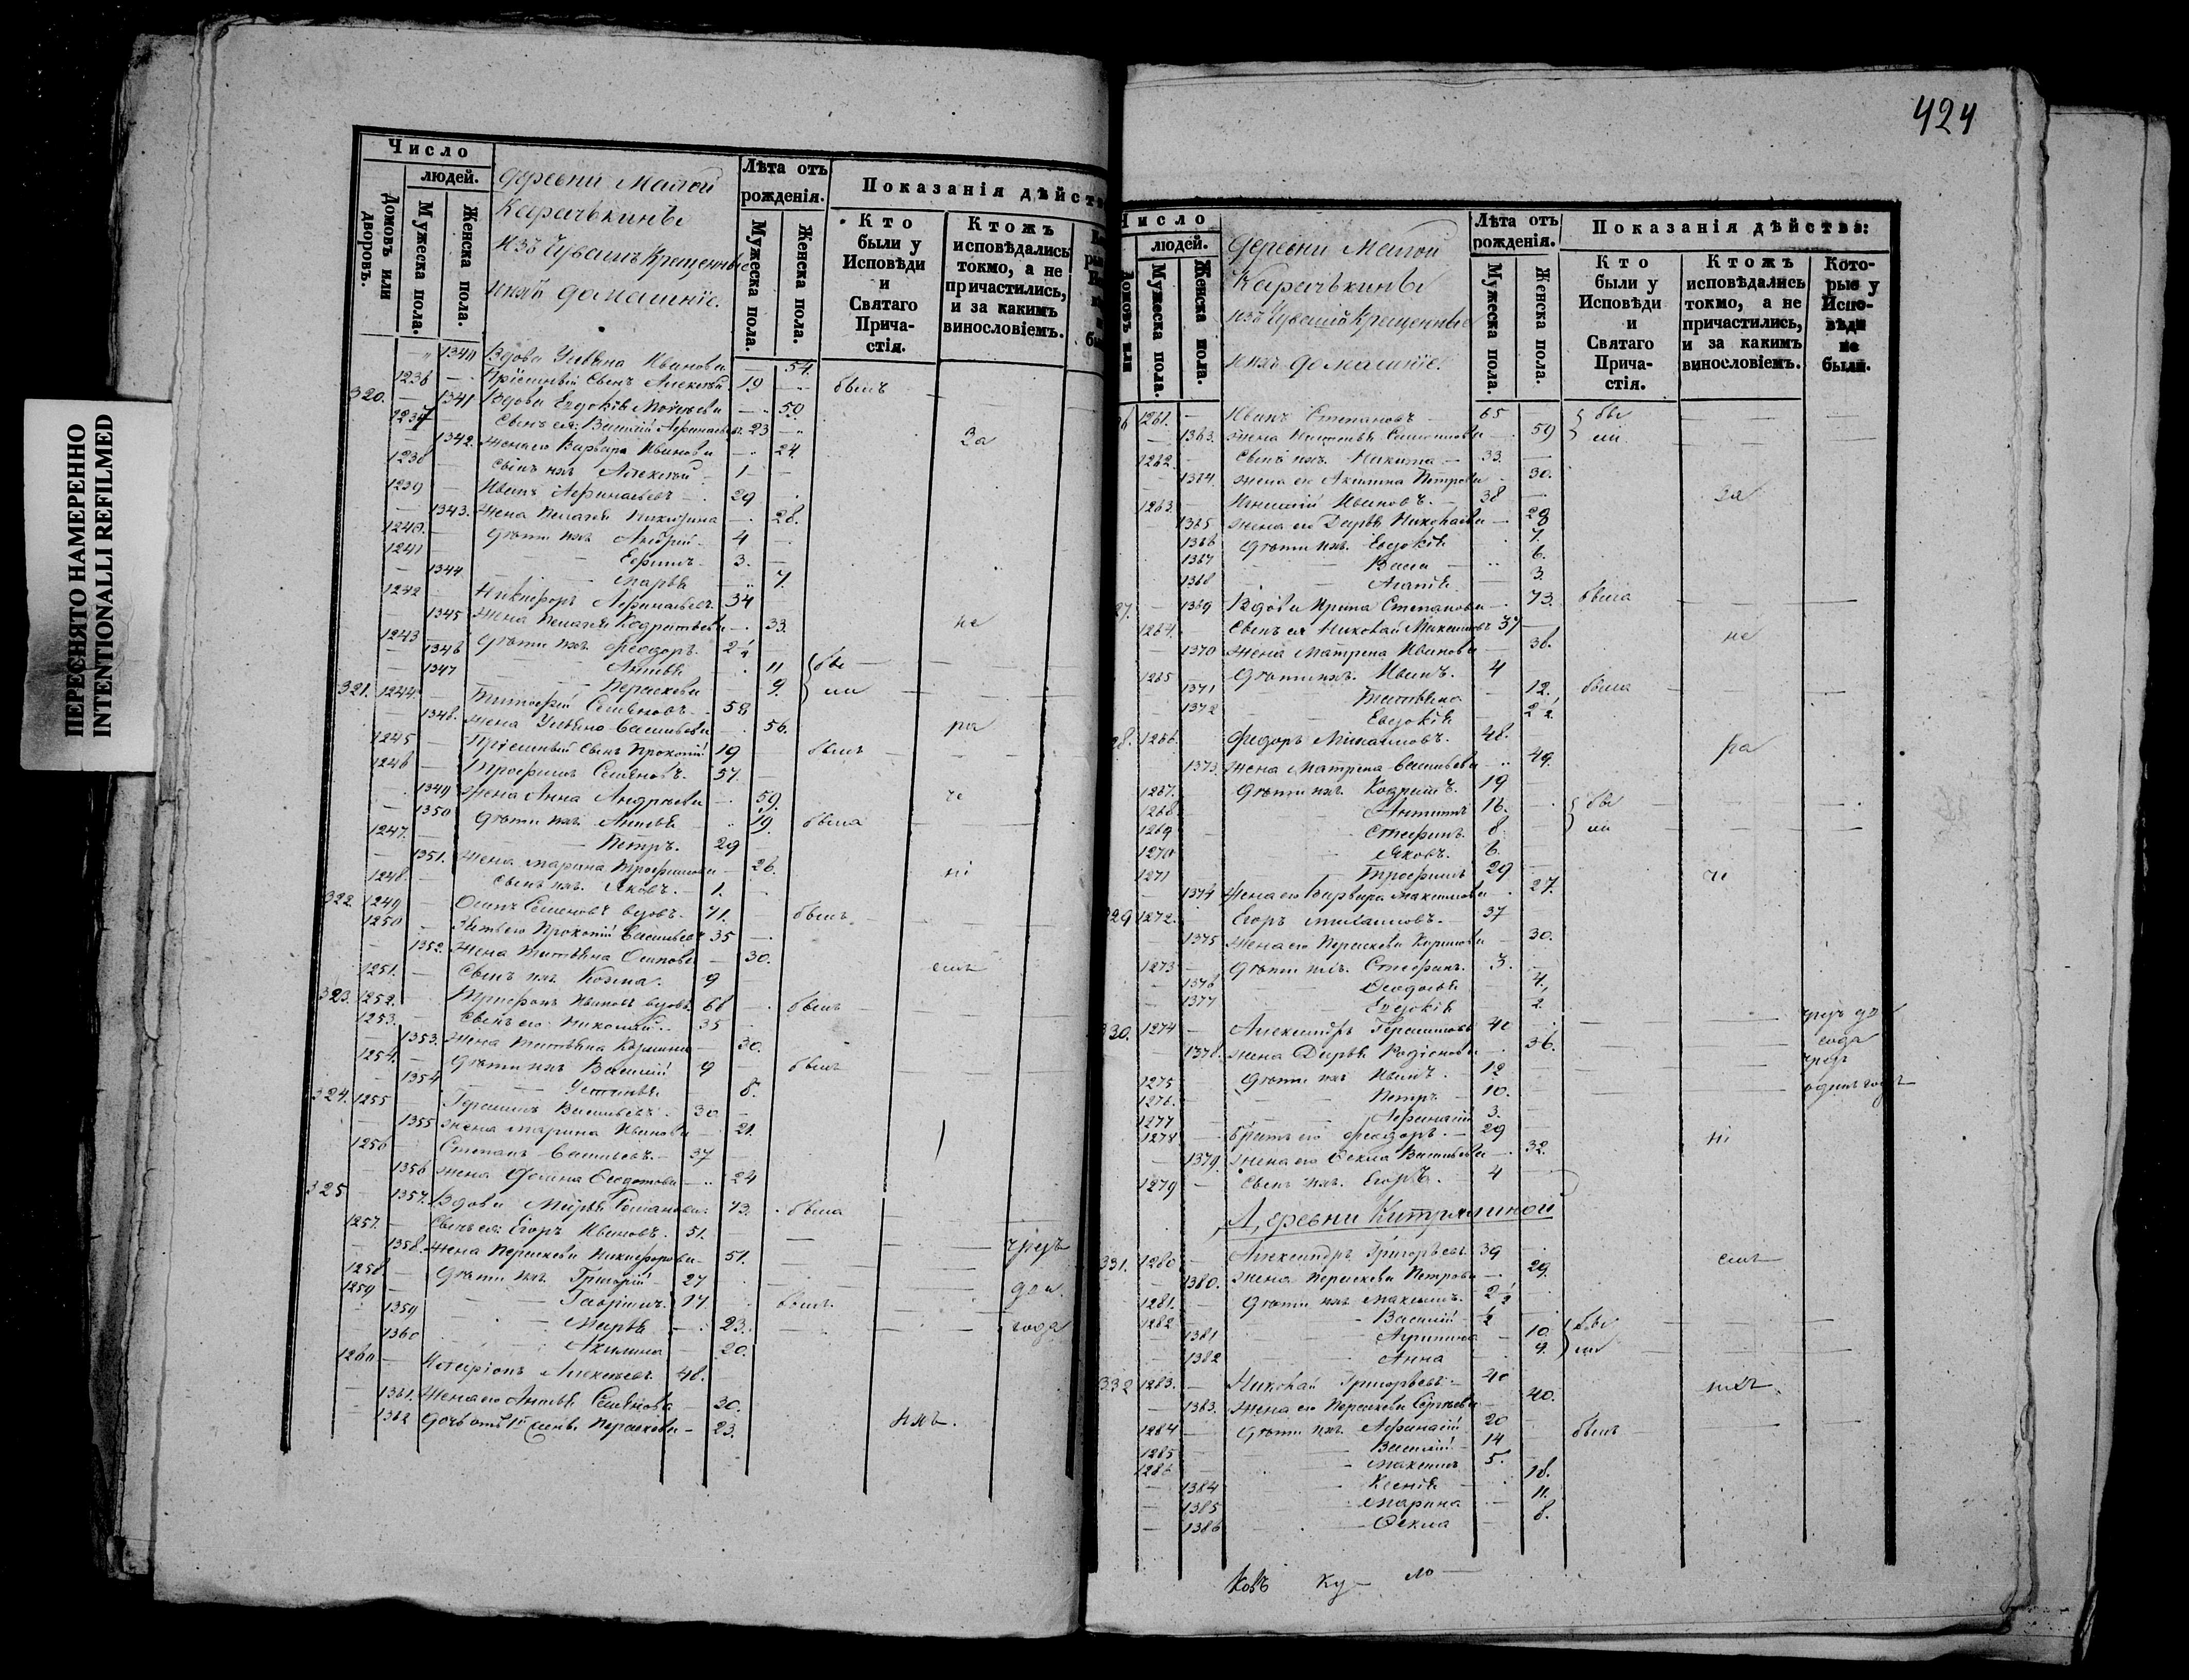 ПЕРЕСНЯТО НАМЕРЕННО
INTENTIONALLI REFILMED
Число
людей.
Домовъ или дворовъ.
Мужеска пола.
Женска пола.
деревни Малой
Карачькинѣ
изъ Чувашъ Крещенные
ихъ домашніе.
Лѣта отъ рожденія.
Мужеска пола.
Женска пола.
Показанія дѣйств
Кто были у Исповѣди и Святаго Причастія.
Ктожъ исповѣдались токмо, а не причастились, и за какимъ винословіемъ.
1340 Вдова Ульяна Иванова — 54.
1236 — Пріемный Сынъ Алексѣй 19 — былъ
320. — 1341 Вдова Евдокія — 50
1237 Сынъ ея Василій Афанасьевъ 23 —
— 1342. Жена его Варвара Иванова — 24 За
1238 — Сынъ ихъ Алексѣй 1 —
1239 — Иванъ Афанасьевъ — 29
— 1343. Жена Пелагея Никитина — 28.
1240. — Дѣти ихъ Андрей 4 —
1241 — Ефимъ 3. —
— 1344. Марья — 7.
1242 — Никифоръ Афанасьевъ 34
1345 Жена Пелагея Кодратьева — 33. не
1243 — Дѣти ихъ Феодоръ 2½
— 1346 Анна 11 бы
— 1347 Параскева 9. ли
321. 1244. Тимофей Семеновъ 58
— 1348. Жена Ульяна Васильева — 56. ра
1245 — Пріемный Сынъ Прокопій 19 — былъ
1246 — Трофимъ Семеновъ 57. —
— 1349 Жена Анна Андреева — 59. че
— 1350 Дѣти ихъ Анна 19. была
1247. — Петръ. 29 —
— 1351. Жена Марина Трофимова — 26.
1248. — Сынъ ихъ Яковъ. 1. — ні
322. 1249 — Осипъ Семеновъ вдовъ. 71. — былъ
1250 — Зять его Прокопій Васильевъ 35 —
— 1352. Жена Татьяна Осипова — 30.
1251. — Сынъ ихъ Козма. 9 емъ
323. 1252. Трифонъ Ивановъ вдовъ. 68 — былъ
1253. — Сынъ его Николай 35 —
— 1353. Жена Татьяна — 30.
1254. — Дѣти ихъ Василій 9 былъ
— 1354 Устинья 8.
324. 1255 — Герасимъ Васильевъ. 30 —
— 1355 Жена Марина Иванова — 21.
1256 — Степанъ Васильевъ 37 —
— 1356 Жена — 24
325 — 1357. Вдова Марья 73. была
1257. — Сынъ ея Егоръ Ивановъ. 51. —
— 1358. Жена Параскева Никифорова — 51. чрезъ
1258. — Дѣти ихъ Григорій 27
1259 — Гаврилъ. 17. былъ два
— 1359 Марья — 23.
— 1360 Акилина — 20. года
1260 — Алексѣевъ 48.
— 1361. Жена его Анна Семенова — 30.
— 1362 Дочь Параскева — 23. имъ.
424
Число
людей.
Домовъ или
Мужеска пола.
Женска пола.
деревни Малой
Карачькинѣ
изъ Чувашъ Крещенные
ихъ домашніе.
Лѣта отъ рожденія.
Мужеска пола.
Женска пола.
Показанія дѣйства:
Кто были у Исповѣди и Святаго Причастія.
Ктожъ исповѣдались токмо, а не причастились, и за какимъ винословіемъ.
Которые у Исповѣди не были.
26 1261. — Иванъ Степановъ 65 — бы
— 1363. Жена Наталья — 59 ли
1262. — Сынъ ихъ Никита 33. —
— 1364. Жена его Акилина Петрова — 30.
1263. — Ивановъ. 38 — За
— 1365 Жена его Дарья Николаева — 28
1366 Дѣти ихъ Евдокія 7.
1367 Васса 6.
1368 Агапія 3.
27. — 1369 Вдова Ирина Степанова — 73. была
1264. — Сынъ ея Николай Максимовъ 37 —
— 1370 Жена Матрена Иванова — 38. не
1265 Дѣти ихъ Иванъ. 4
1371 Татьяна 12. была
1372 Евдокія 2½
28. 1266. Федоръ Михаиловъ. 48. —
1373. Жена Матрена Васильева 49. ра
1267. Дѣти ихъ Кодратъ. 19
1268. 16. бы
1269 Стефанъ. 8. ли
1270 Яковъ. 6.
1271 Трофимъ 29 че
1374 Жена его Варвара Максимова 27.
29 1272. — Егоръ Михаиловъ. 37
— 1375 Жена его Параскева — 30.
1273 — Дѣти ихъ Стефанъ. 3.
1376 Феодосья 4.
1377 Евдокія 2.
330. 1274 — Александръ Герасимовъ 40 чрезъ два
— 1378. Жена Дарья Родіонова — 36. года
1275 Дѣти ихъ Иванъ. 12 чрезъ
1276. Петръ 10. одинъ годъ
1277 Афанасій 3.
1278 Братъ его Феодоръ. 29 ні
— 1379. Жена его Фекла Васильева — 32.
1279 — Сынъ ихъ Егоръ. 4
Деревни Китрялиной
331. 1280 — Александръ Григорьевъ 39 емъ
— 1380. Жена Параскева Петрова — 29.
1281. — Дѣти ихъ Максимъ. 2½
1282 Василій ½
1381 Агрипина 10. бы
1382 Анна 9. ли
332 1283. — Николай Григорьевъ 40 ихъ
— 1383. Жена его Параскева Сергѣева — 40.
1284 — Дѣти ихъ Афанасій 20 былъ
1285 Василій 14
1286 Максимъ 5.
1384 Ксенія 18.
1385 Марина 11.
1386 Фекла 8.